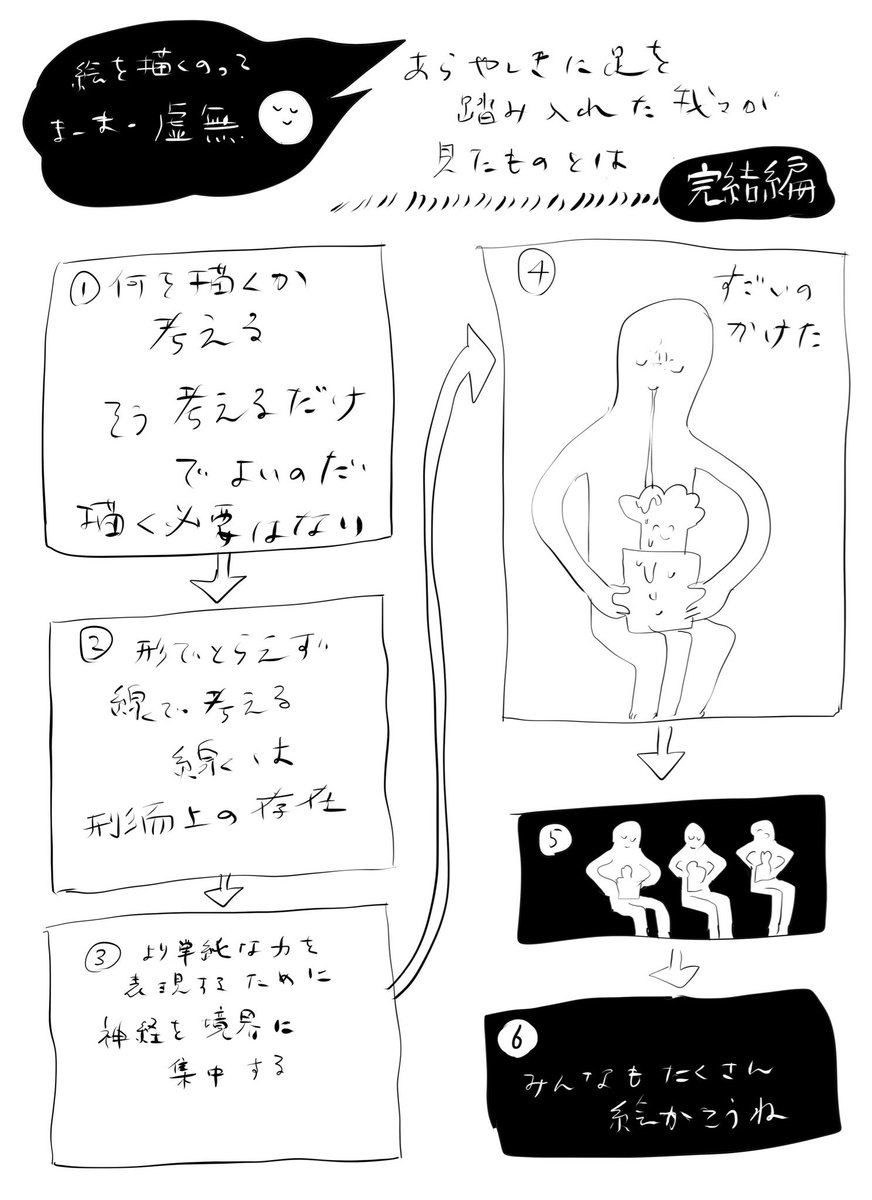 絵を描くのって
まーまー虚無
あらやしきに足を
踏み入れた我々が
見たものとは
完結編
① 何を描くか
考える
そう考えるだけ
でよいのだ
描く必要はない
② 形でとらえず
線で考える
線は
形而上の存在
③ より単純な力を
表現するために
神経を境界に
集中する
④ すごいの
かけた
⑤
⑥
みんなもたくさん
絵かこうね